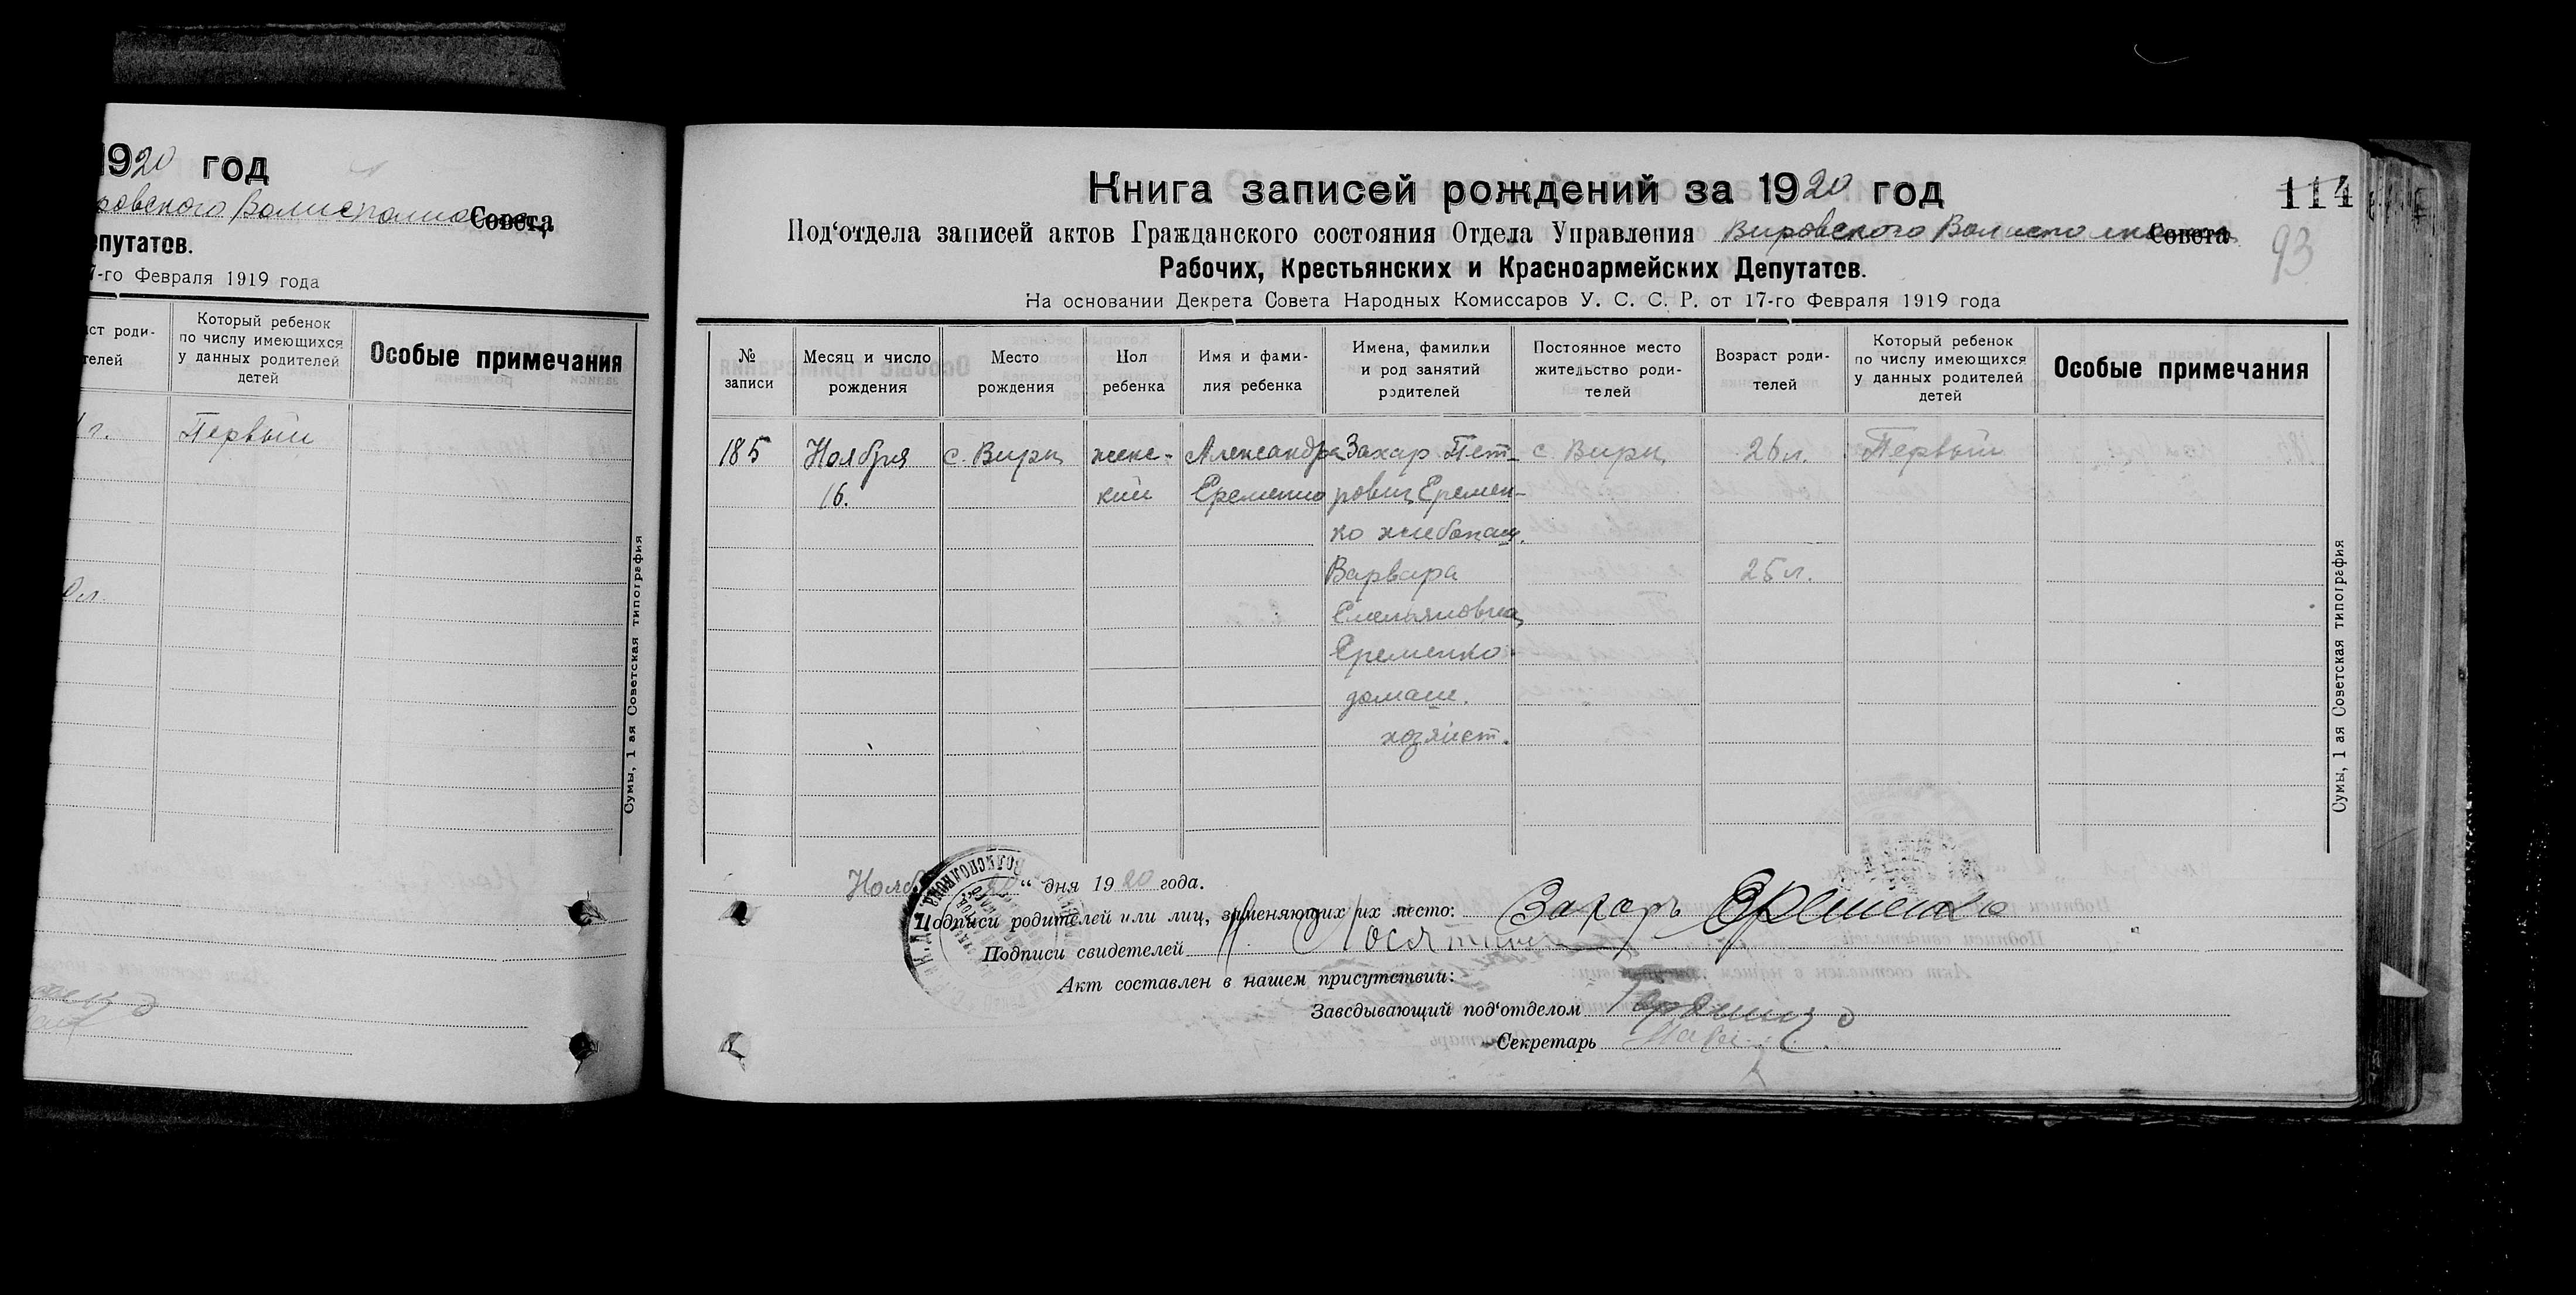 1920 год
ровского Волисполкома Совета
епутатов.
7-го Февраля 1919 года
ст роди-
телей
Который ребенок
по числу имеющихся
у данных родителей
детей
Особые примечания
г. Первый
0 л.
Сумы, 1 ая Советская типография
Книга записей рождений за 1920 год
114
93
Под‘отдела записей актов Гражданского состояния Отдела Управления Вировского Волисполкома Совета
Рабочих, Крестьянских и Красноармейских Депутатов.
На основании Декрета Совета Народных Комиссаров У. С. С. Р. от 17-го Февраля 1919 года
№
записи
Месяц и число
рождения
Место
рождения
Пол
ребенка
Имя и фами-
лия ребенка
Имена, фамилии
и род занятий
родителей
Постоянное место
жительство роди-
телей
Возраст роди-
телей
Который ребенок
по числу имеющихся
у данных родителей
детей
Особые примечания
185
Ноября
16.
с. Виры
женс-
кий
Александра
Еременко
Захар Пет-
рович Еремен-
ко хлебопаш.
Варвара
Емельяновна
Еременко
домаш.
хозяйст.
с Виры
26 л.
25 л.
Первый
Сумы, 1 ая Советская типография
Нояб 20“ дня 1920 года.
Подписи родителей или лиц, заменяющих их место: Захаръ Еременко
Подписи свидетелей
Акт составлен в нашем присутствии:
Заведывающий под‘отделом
Секретарь